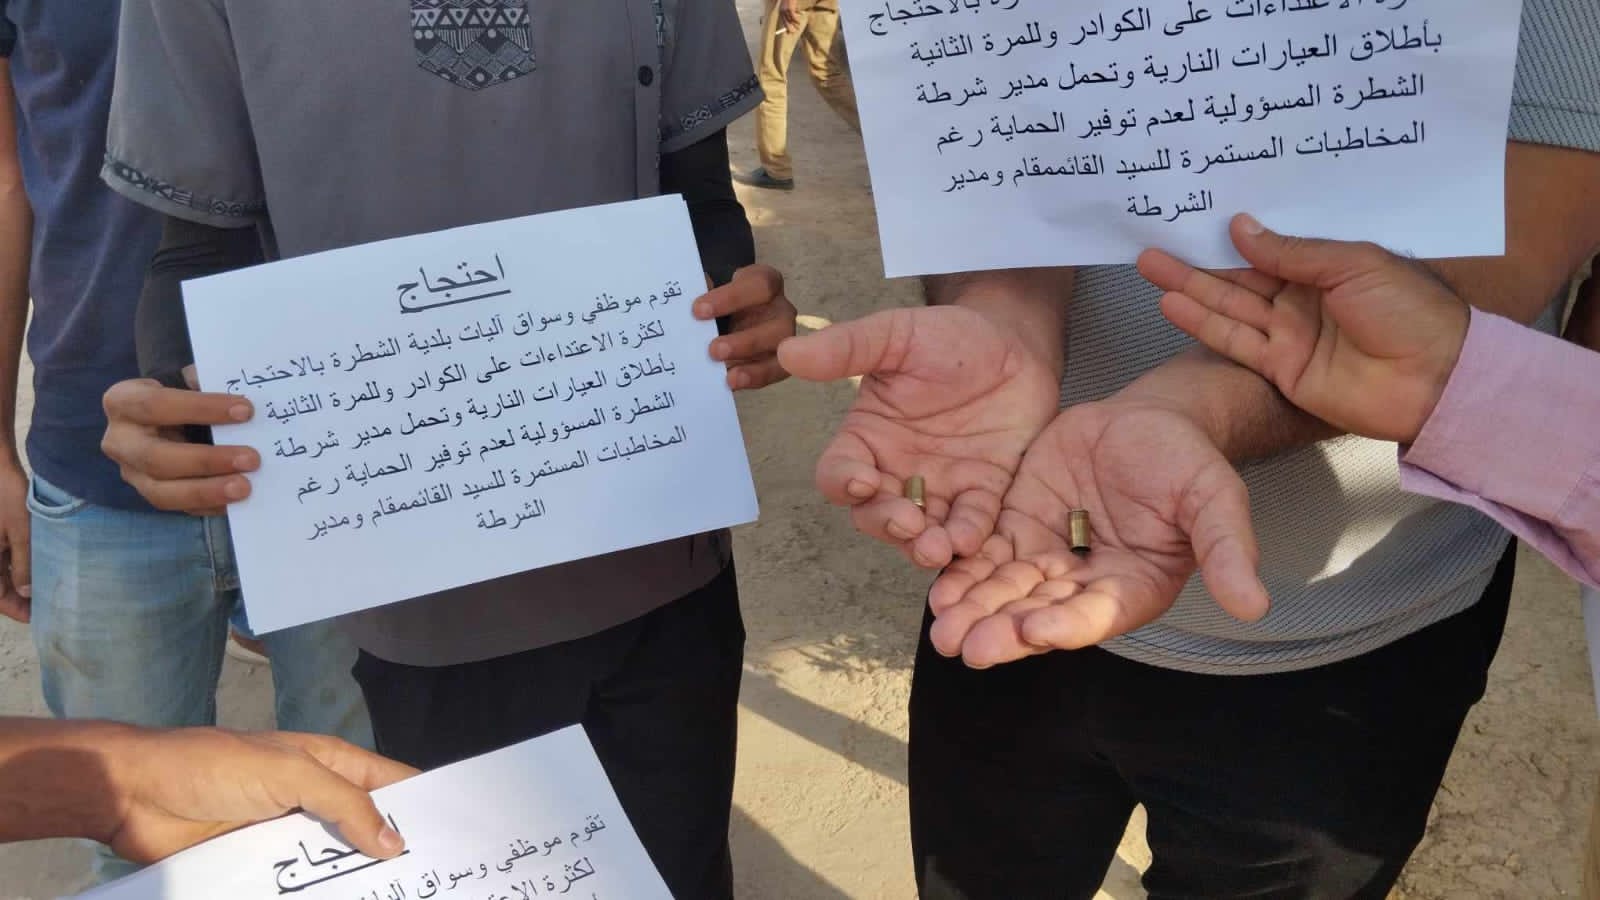 احتجاج
تقوم موظفي وسواق آليات بلدية الشطرة بالاحتجاج
لكثرة الاعتداءات على الكوادر وللمرة الثانية
بأطلاق العيارات النارية وتحمل مدير شرطة
الشطرة المسؤولية لعدم توفير الحماية رغم
المخاطبات المستمرة للسيد القائممقام ومدير
الشرطة
بالاحتجاج
الاعتداءات على الكوادر وللمرة الثانية
بأطلاق العيارات النارية وتحمل مدير شرطة
الشطرة المسؤولية لعدم توفير الحماية رغم
المخاطبات المستمرة للسيد القائممقام ومدير
الشرطة
تقوم موظفي وسواق
لكثرة